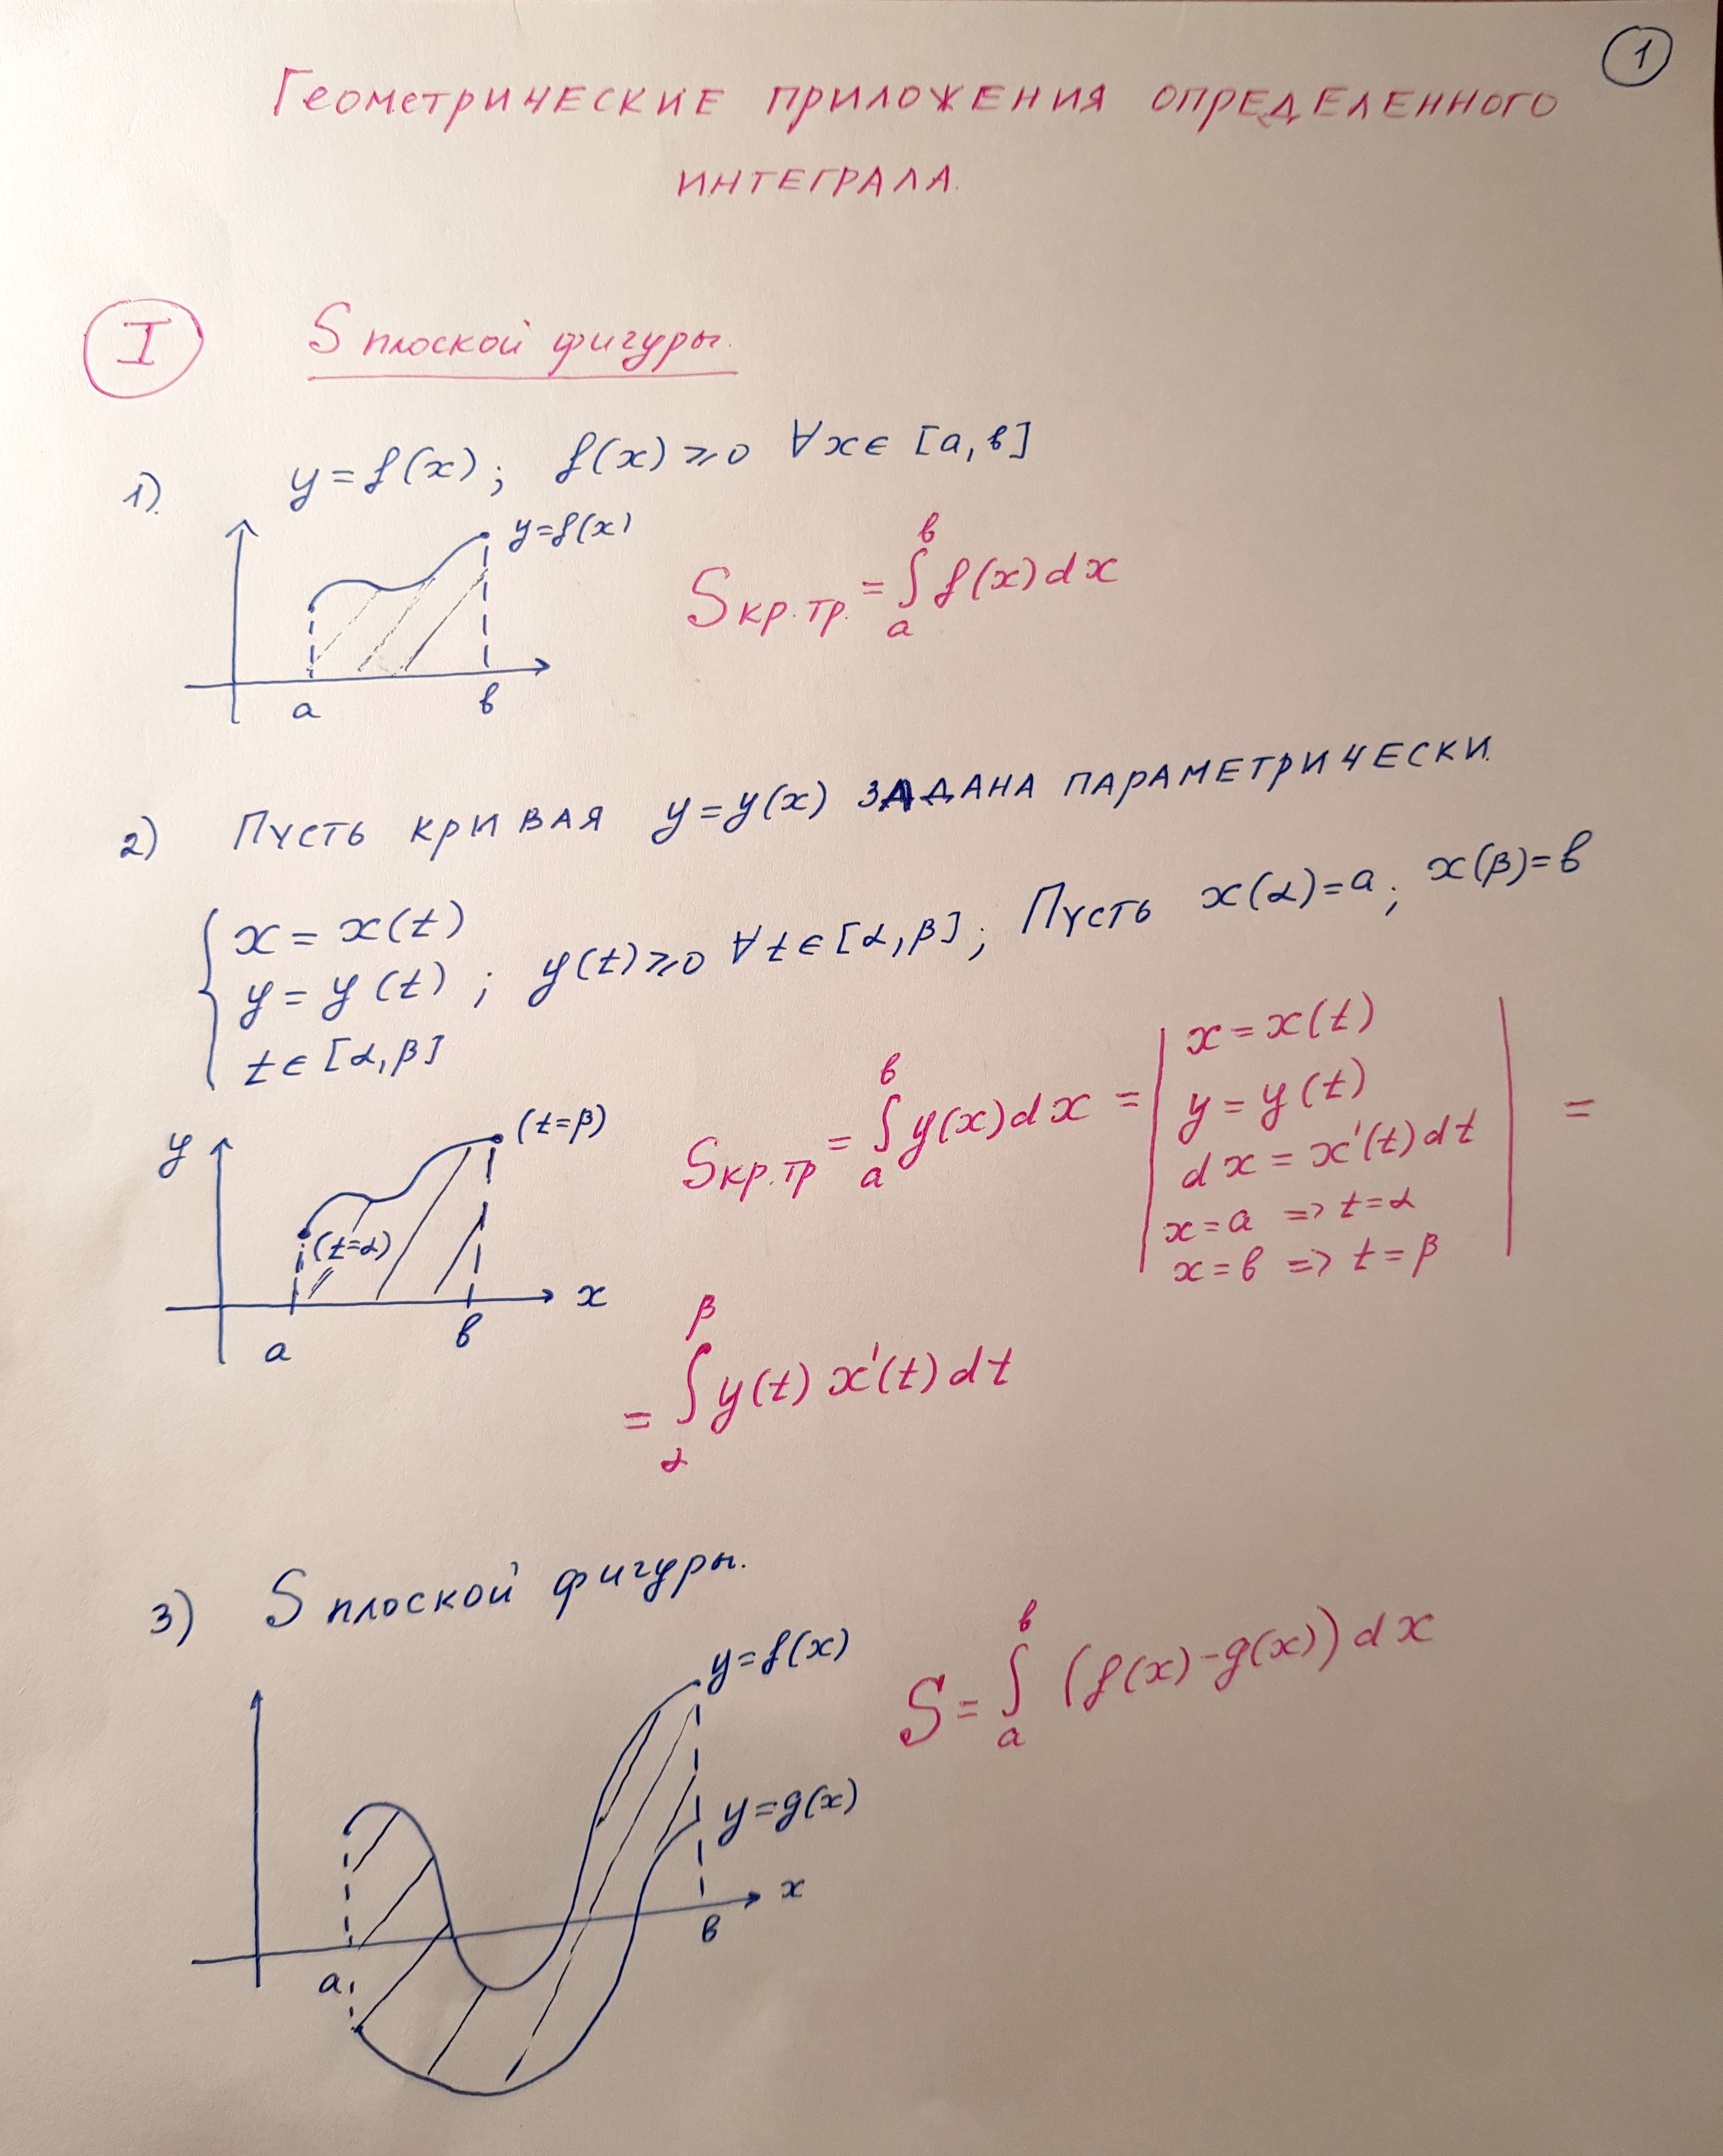 1
Геометрические приложения определенного
интеграла.
I S плоской фигуры.
1). y=f(x); f(x)⩾0 ∀x∈[a,b]
y=f(x)
a b
S кр.тр. = ∫ₐᵇ f(x)dx
2) Пусть кривая y=y(x) задана параметрически.
{ x=x(t)
y=y(t); y(t)⩾0 ∀t∈[α,β]; Пусть x(α)=a; x(β)=b
t∈[α,β]
y (t=β)
(t=α)
x
a b
S кр.тр = ∫ₐᵇ y(x)dx = | x=x(t)
y=y(t)
dx=x'(t)dt
x=a => t=α
x=b => t=β | =
= ∫_α^β y(t)x'(t)dt
3) S плоской фигуры.
y=f(x)
y=g(x)
x
a b
S = ∫ₐᵇ (f(x)-g(x))dx